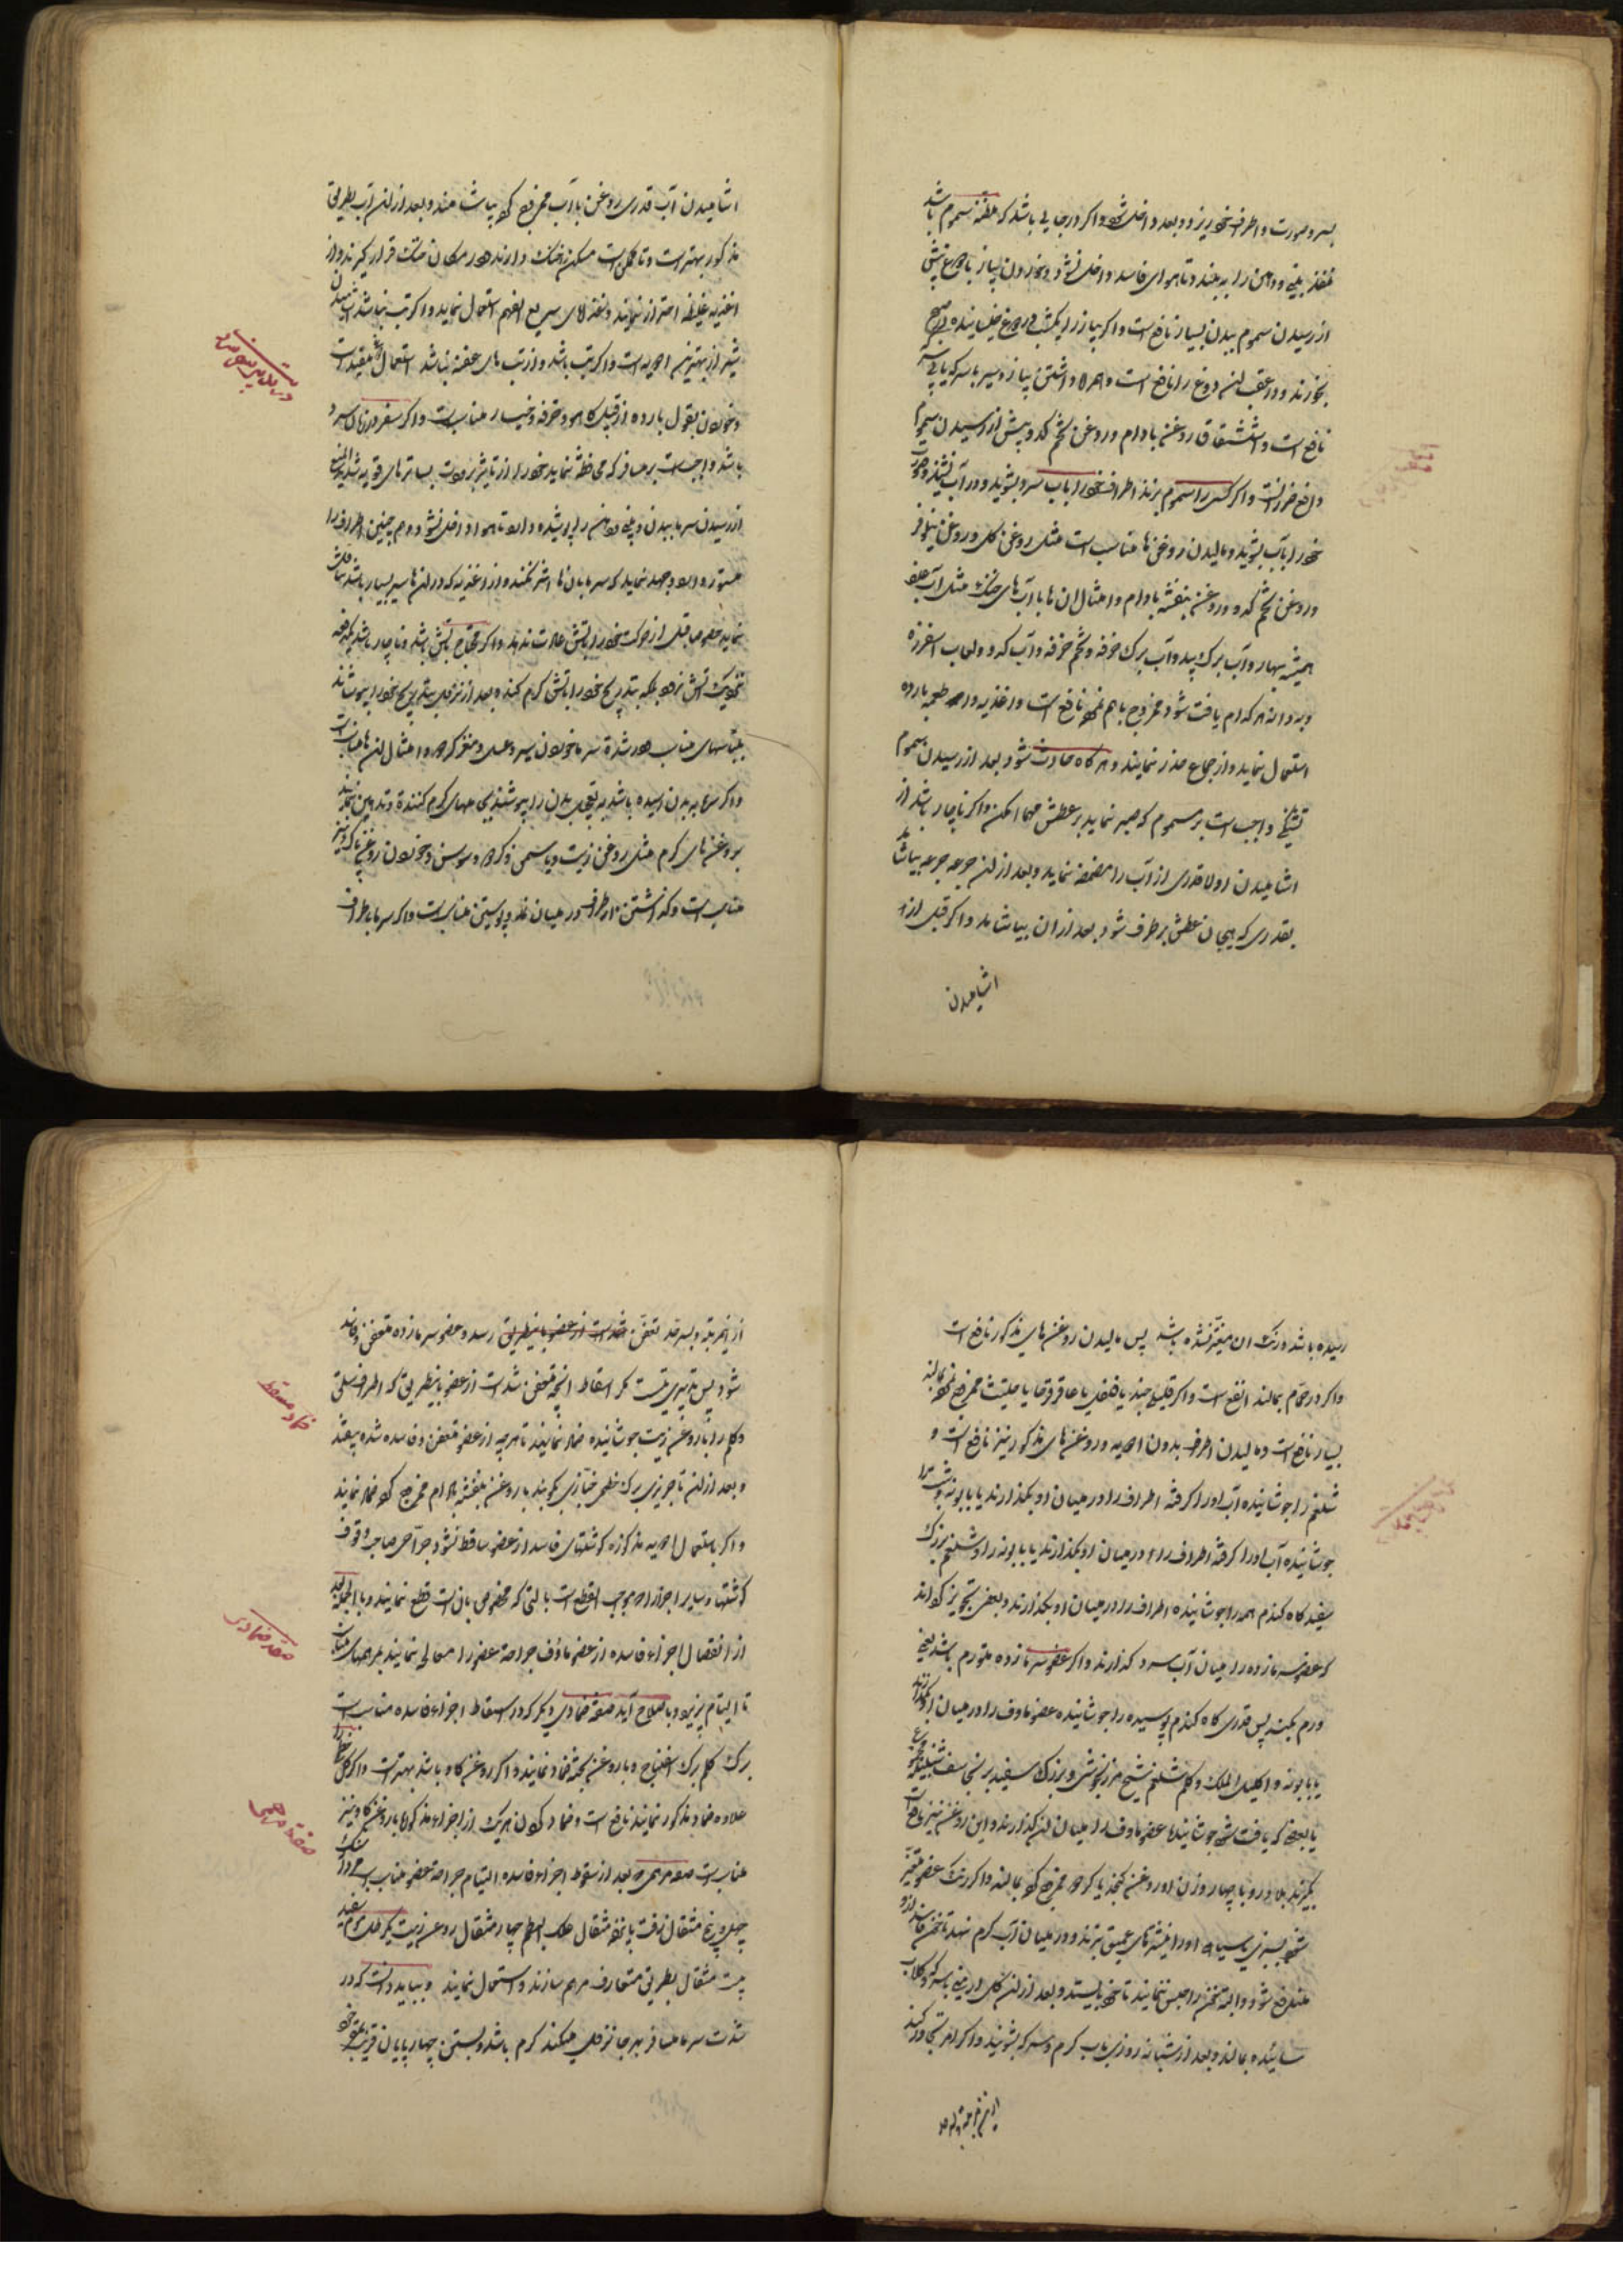 بسر و صورت و اطراف خود بریزد و بعد داخل شود و اکر در جایی باشد که مظنه سموم باشد
منفذ بینی و دهن را به بندد تا هوای فاسد داخل نشود و خوردن پیاز با دوغ پیش
از رسیدن سموم ببدن بسیار نافع است و اکر پیاز را یکشب در دوغ خیسانیده صبح
بخورند و در عقب آن دوغ را نافع است و همراه داشتن پیاز و سیر با سرکه
نافع است و استنشاق روغن بادام و روغن تخم کدو پیش از رسیدن سموم
دافع ضرر آنست و اکر کسی را سموم بزند اطراف خود را باب سرد بشوید و در آب نشیند و صورت
خود را بآب بشوید و مالیدن روغن ها مناسب است مثل روغن کل و روغن نیلوفر
و روغن تخم کدو و روغن بنفشه بادام و امثال ان ها با آب های خنک مثل آب
همیشه بهار و آب برک بید و آب برک خرفه و تخم خرفه و آب کدو و لعاب اسفرزه
و به دانه هر کدام یافت شود ممزوج باهم نموده نافع است و اغذیه و اطعمه بارده
استعمال نماید و از جماع حذر نمایند و هر کاه حادث شود بعد از رسیدن سموم
تشنکی واجب است بر مسموم که صبر نماید بر عطش مهما امکن و اکر ناچار باشد از
اشامیدن اولا قدری از آب را مضمضه نماید و بعد از ان جرعه جرعه بیاشامد
بقدری که هیجان عطش بر طرف شود بعد از ان بیاشامد و اکر قبل از
اشامیدن
اشامیدن آب قدری روغن باآب ممزوج کرده بیاشامند و بعد از ان آب بطریق
مذکور بهتر است و تا ممکن است مسکن خنک دارند و در مکان خنک قرار کیرند و از
اغذیه غلیظه احتراز نمایند و غذاهای سریع الهضم استعمال نماید و اکر تب نباشد اشامیدن
شیر از بهترین ادویه است و اکر تب باشد و از تب های عفنه نباشد استعمال دوغ مفید است
و خوردن بقول بارده از قبیل کاهو و خرفه و خیار مناسب است و اکر سفر در زمان سرد
باشد واجب است بر مسافر که محافظت نماید خود را از تاثیر برودت بساترهای قویه شدید المنع
از رسیدن سرما ببدن و بینی و دهن را پوشیده دارد تا هوا داخل نشود و هم چنین اطراف را
مستور دارد و جهد نماید که سرما بان ها اثر نکند و از اغذیه که در ان ها سیر بسیار باشد تناول
نماید خصوصا قبل از حرکت و خود را باتش عادت ندهد و اکر محتاج باتش باشد و ناچار باشد یکدفعه
نزدیک آتش نرود بلکه بتدریج خود را باتش کرم کند و بعد از نزول بتدریج خود را بپوشاند
بلباسهای مناسب و در شدة سرما خوردن سیر و عسل و مغز کردو و امثال ان ها مناسب است
و اکر سرما به بدن رسیده باشد به تعجیل بدن را بپوشند بجامهای کرم کننده و تدهین نمایند
بروغن های کرم مثل روغن زیت و یاسمن و کردو و سوسن و خوردن روغن کردو نیز
مناسب است و کذاشتن اطراف در میان نمد و پوستین مناسب است و اکر سرما باطراف
رسیده باشد و رنک ان متغیر نشده باشد پس مالیدن روغن های مذکور نافع است
و اکر در حمام بمالند انفع است و اکر قلیلی جند یا فلفل یا عاقرقرحا یا حلتیت ممزوج نموده بمالند
بسیار نافع است و مالیدن اطراف بدون ادویه و روغن های مذکور نیز نافع است و
شلغم را جوشانیده آب او را کرفته اطراف را در میان او بکذارند یا بابونه و شبت را
جوشانیده آب او را کرفته اطراف را در میان او بکذارند یا بابونه را و شلغم بزرک
سفید کاه کندم همه را جوشانیده اطراف را در میان او بکذارند و بعضی تجویز کرده اند
که عضو سرمازده را میان آب سرد کذارند و اکر عضو سرمازده متورم باشد یعنی
ورم بکند پس قدری کاه کندم پوسیده را جوشانیده عضو ماوف را در میان او بکذارند
یا بابونه و اکلیل الملک و کلم شلغم شیح مرزنجوش و بزرک سفید برنجاسف شنبلیله
یا بعضی که یافت شود جوشانیده عضو ماوف را میان ان کذارند و این روغن نیز نافع است
بکیرند بلادر و با چهار وزن او روغن کنجد یا کردو ممزوج کرده بمالند و اکر رنک عضو متغیر
شود بسبزی یا سیاهی او را نیشترهای عمیق بزنند و در میان آب کرم نهند تا خون فاسد ازو
مندفع شود و البته خون را حبس ننمایند تا خود بایستد و بعد از ان کل ارمنی با سرکه و کلاب
سائیده بمالند و بعد از شبانه روزی باب کرم و سرکه بشویند و اکر امر تجاوز کند
از این مرتبه
از این مرتبه و بسرحد تعفن رسد و عضو سرمازده متعفن و فاسد
شود پس تدبیری نیست مکر اسقاط انچه متعفن شده است از عضو باینطریق که اطراف سلق
و کلم را با روغن زیت جوشانیده ضماد نمایند تا هر چه از عضو متعفن و فاسد شده بیفتد
و بعد از ان تاجریزی برک خطمی خبازی بکوبند با روغن بنفشه بادام ممزوج کرده ضماد نمایند
و اکر باستعمال ادویه مذکوره کوشتهای فاسد از عضو ساقط نشود جراحی صاحب وقوف
کوشتها و سایر اجزاء واجب القطع است بالتی که مخصوص بان است قطع نمایند و بالجمله بعد
از انفصال اجزاء فاسده از عضو ماؤف جراحة عضو را معالجه نمایند بمرهمهای مناسب
تا التیام پذیرد و باصلاح آید صفة ضمادی دیکر که در اسقاط اجزاء فاسده مناسب است
برک کلم برک اسفناج و با روغن پخته ضماد نمایند و اکر روغن کاو باشد بهتر است و اکر کل خطمی را
علاوه ضماد مذکور نمایند نافع است و ضماد کردن هریک از اجزاء مذکوره با روغن کاو نیز
مناسب است صفة مرهمی که بعد از سقوط اجزاء فاسده التیام جراحة عضو مناسب است
چهل و پنج مثقال زفت پانزده مثقال علک البطم چهار مثقال روغن زیت یکرطل موم سفید
بیست مثقال بطریق متعارف مرهم سازند و استعمال نمایند و بباید دانست که در
شدت سرما مسافر بهر جا نزول میکند کرم باشد و بستن چهارپایان قریب بخود
ضماد مسقط
صفة ضمادی
صفة مرهمی